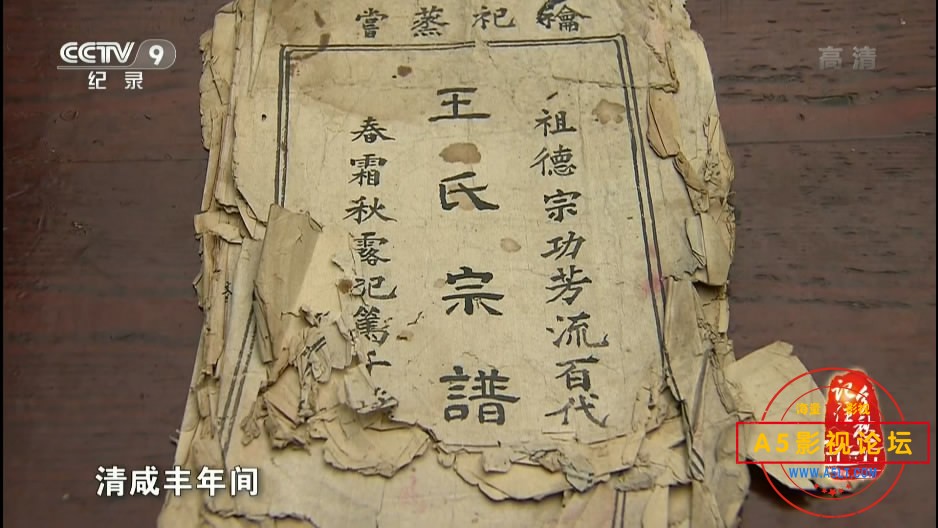 CCTV 9
纪录
高清
禴祀蒸嘗
祖德宗功芳流百代
王氏宗譜
春霜秋露祀篤千
清咸丰年间
A5影视论坛